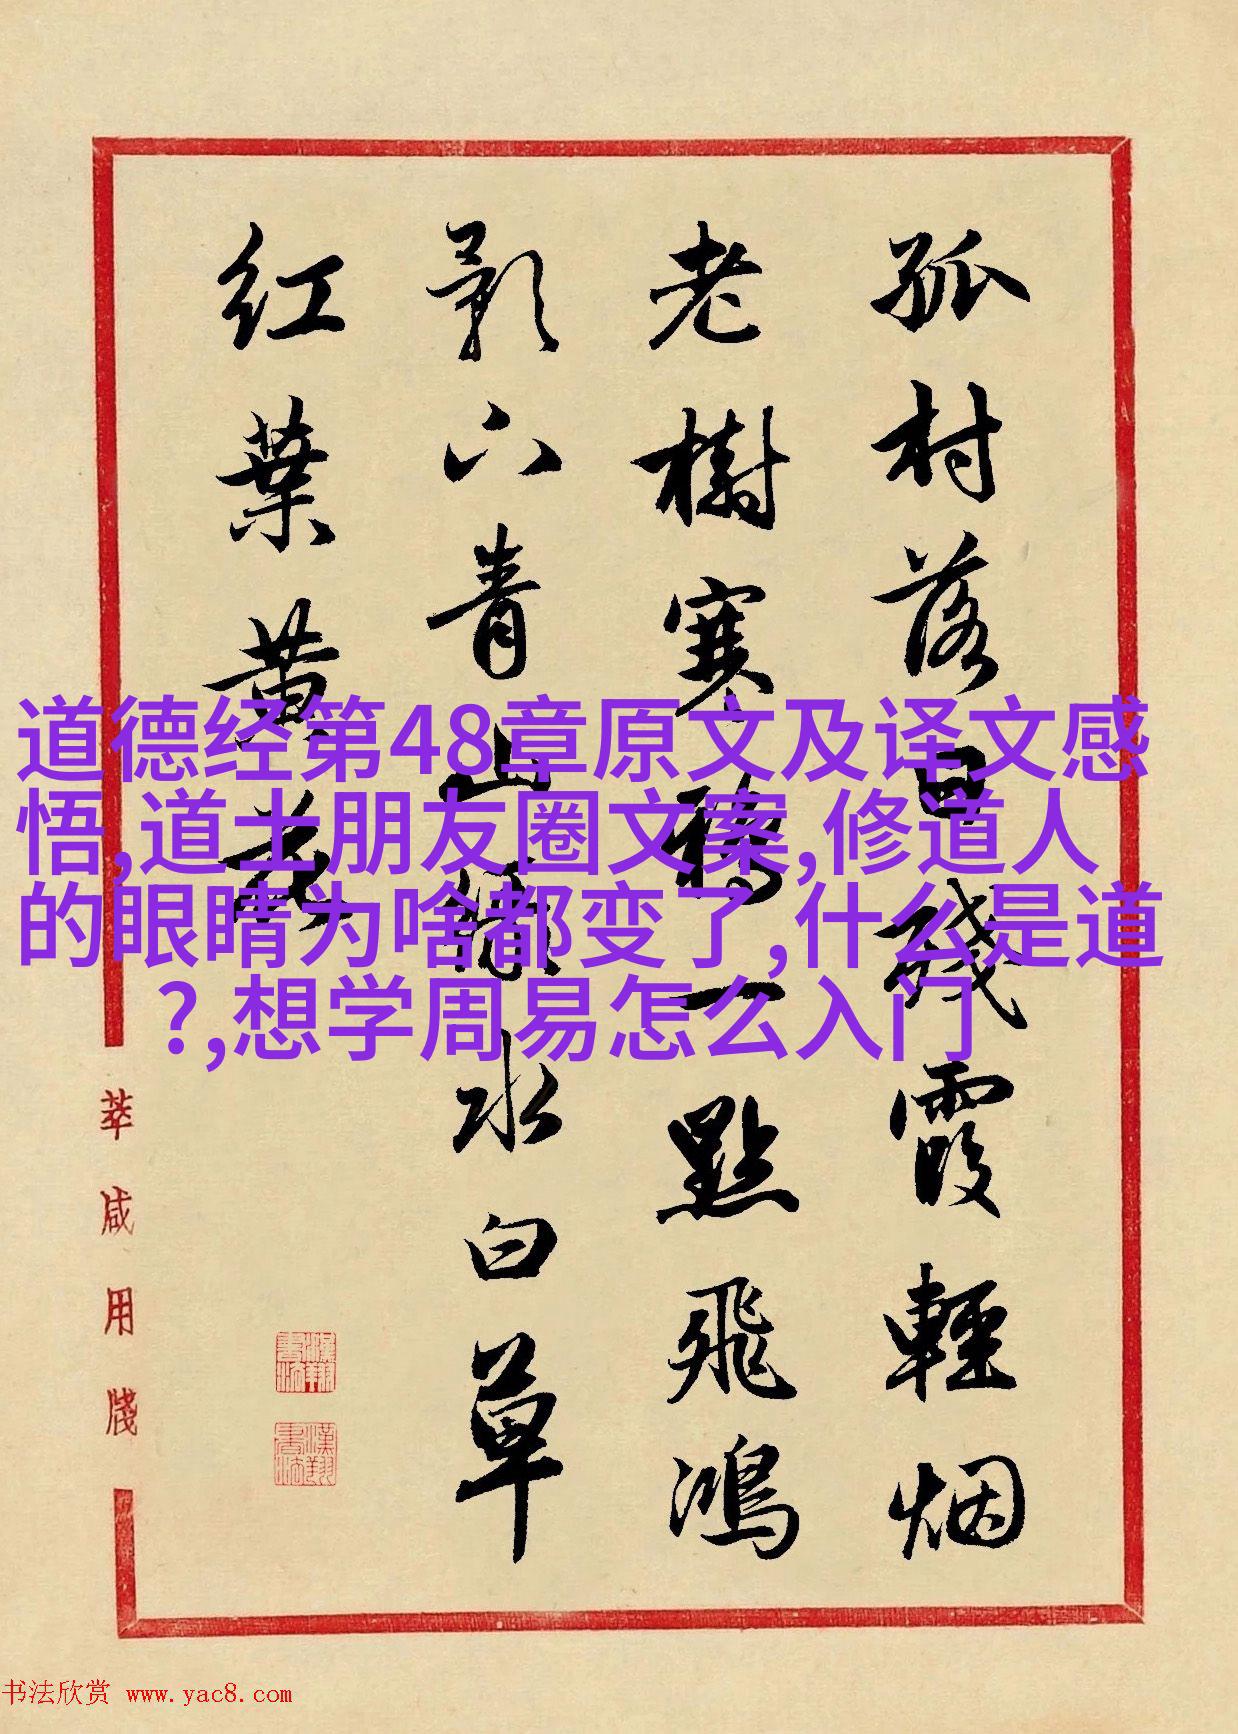 孤村落日残霞輕烟
老樹寒鴉一點飛鴻
影下青山綠水白草
紅葉黃花
道德经第48章原文及译文感
悟,道士朋友圈文案,修道人
的眼睛为啥都变了,什么是道
?,想学周易怎么入门
莘咸用牋
书法欣赏 www.yac8.com